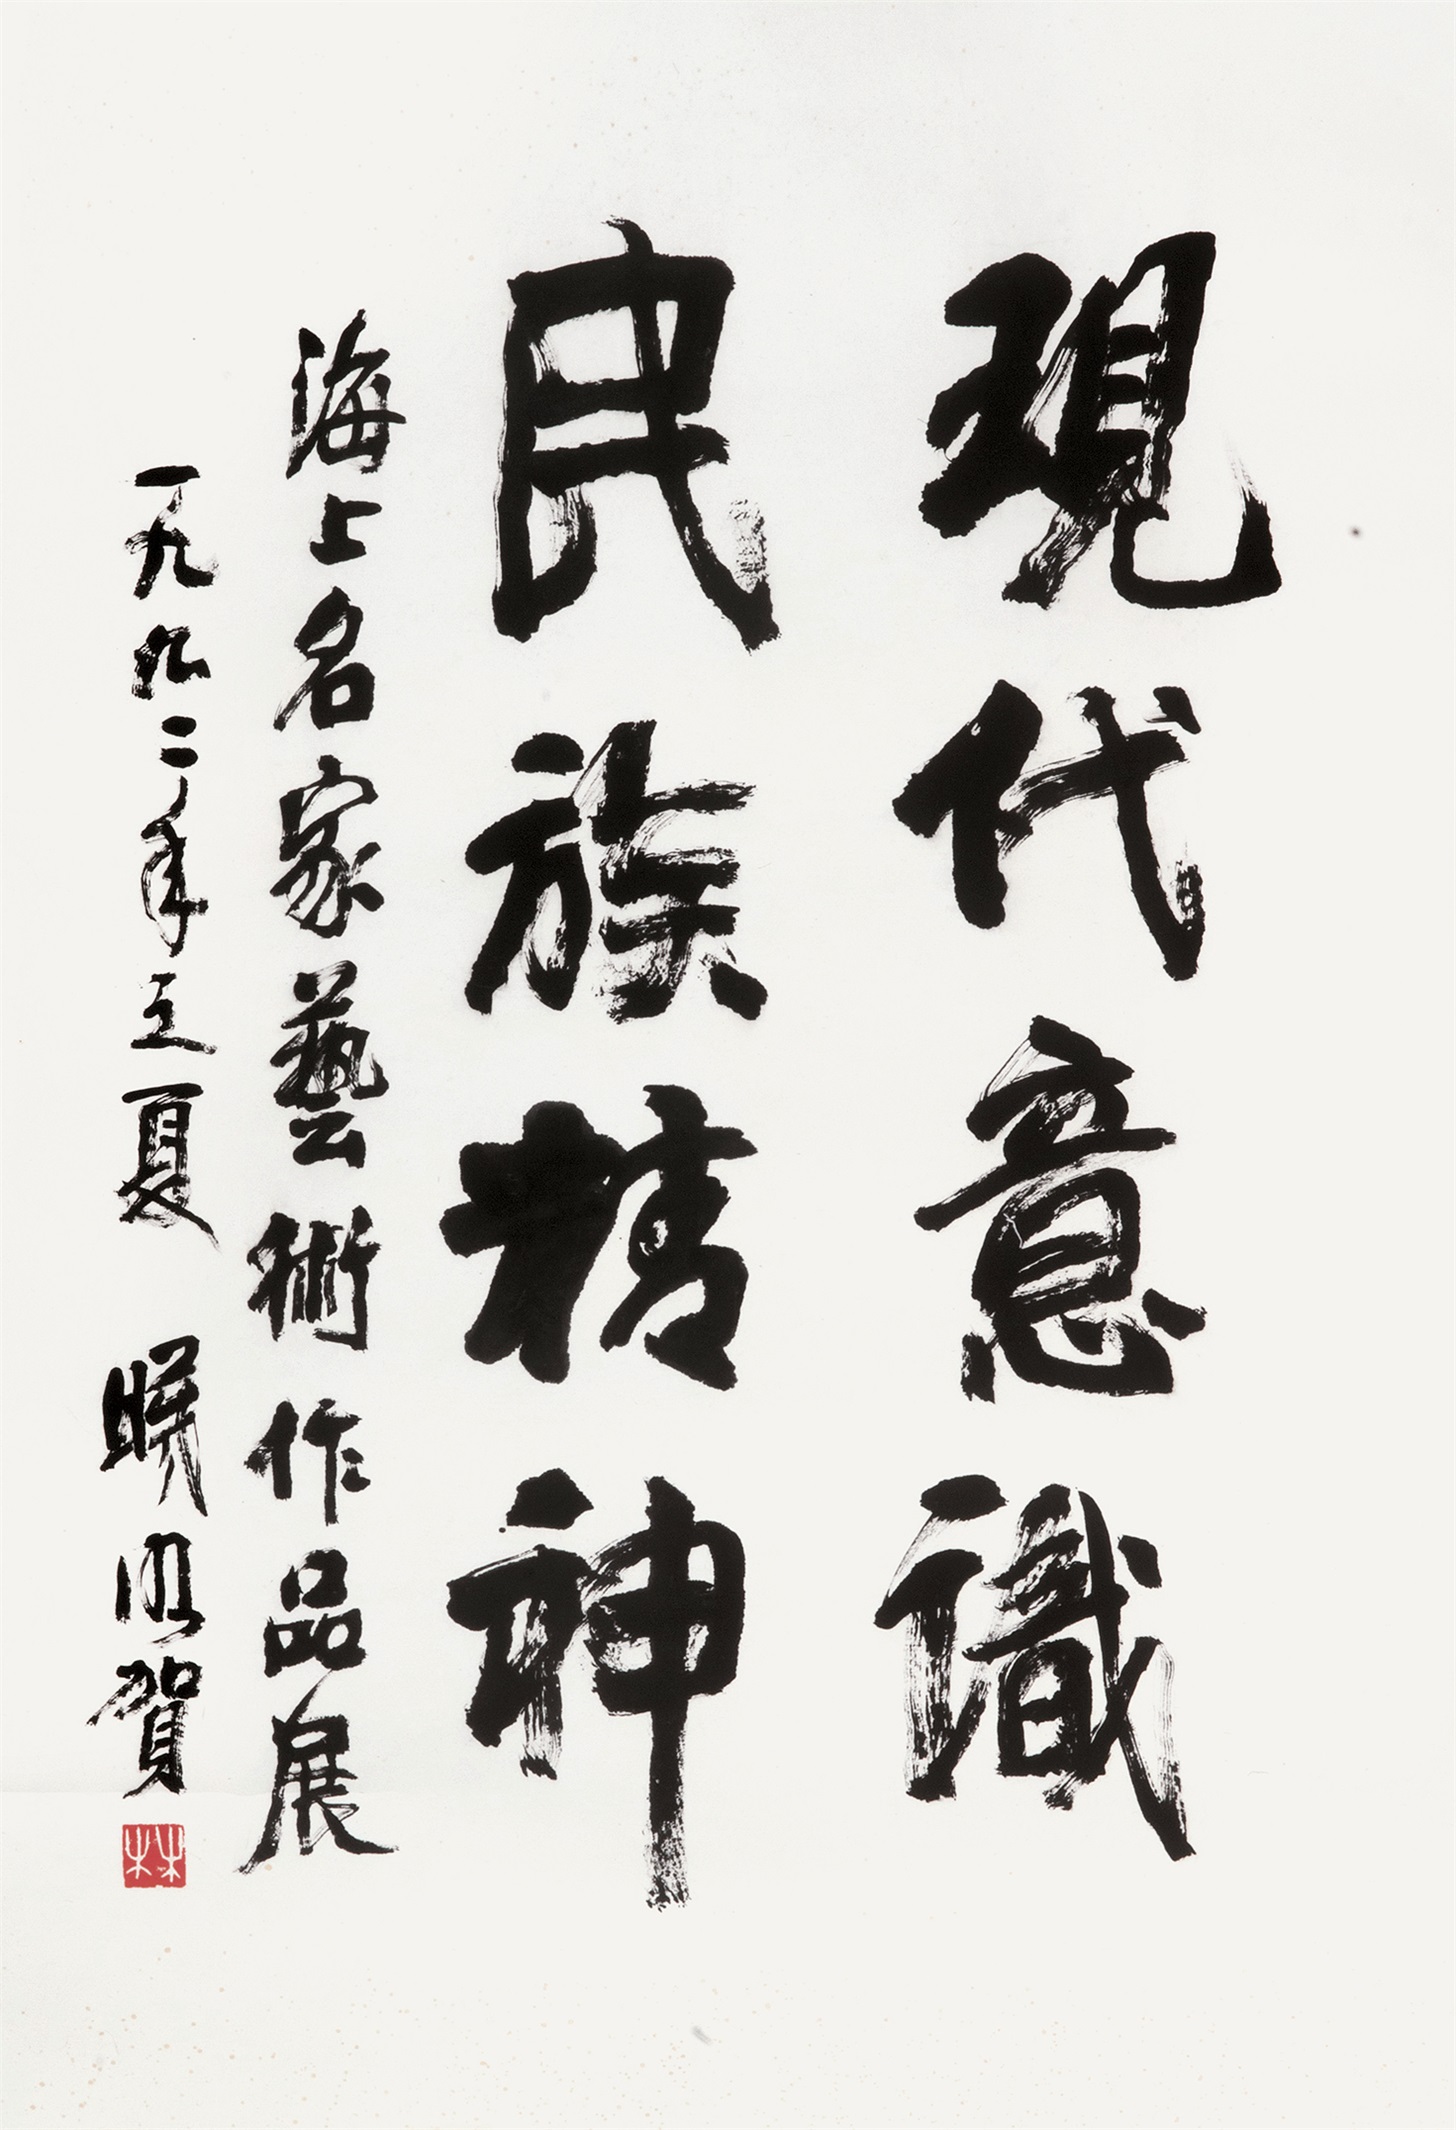 現代意識
民族精神
海上名家藝術作品展
一九九二年立夏 曦明賀
林